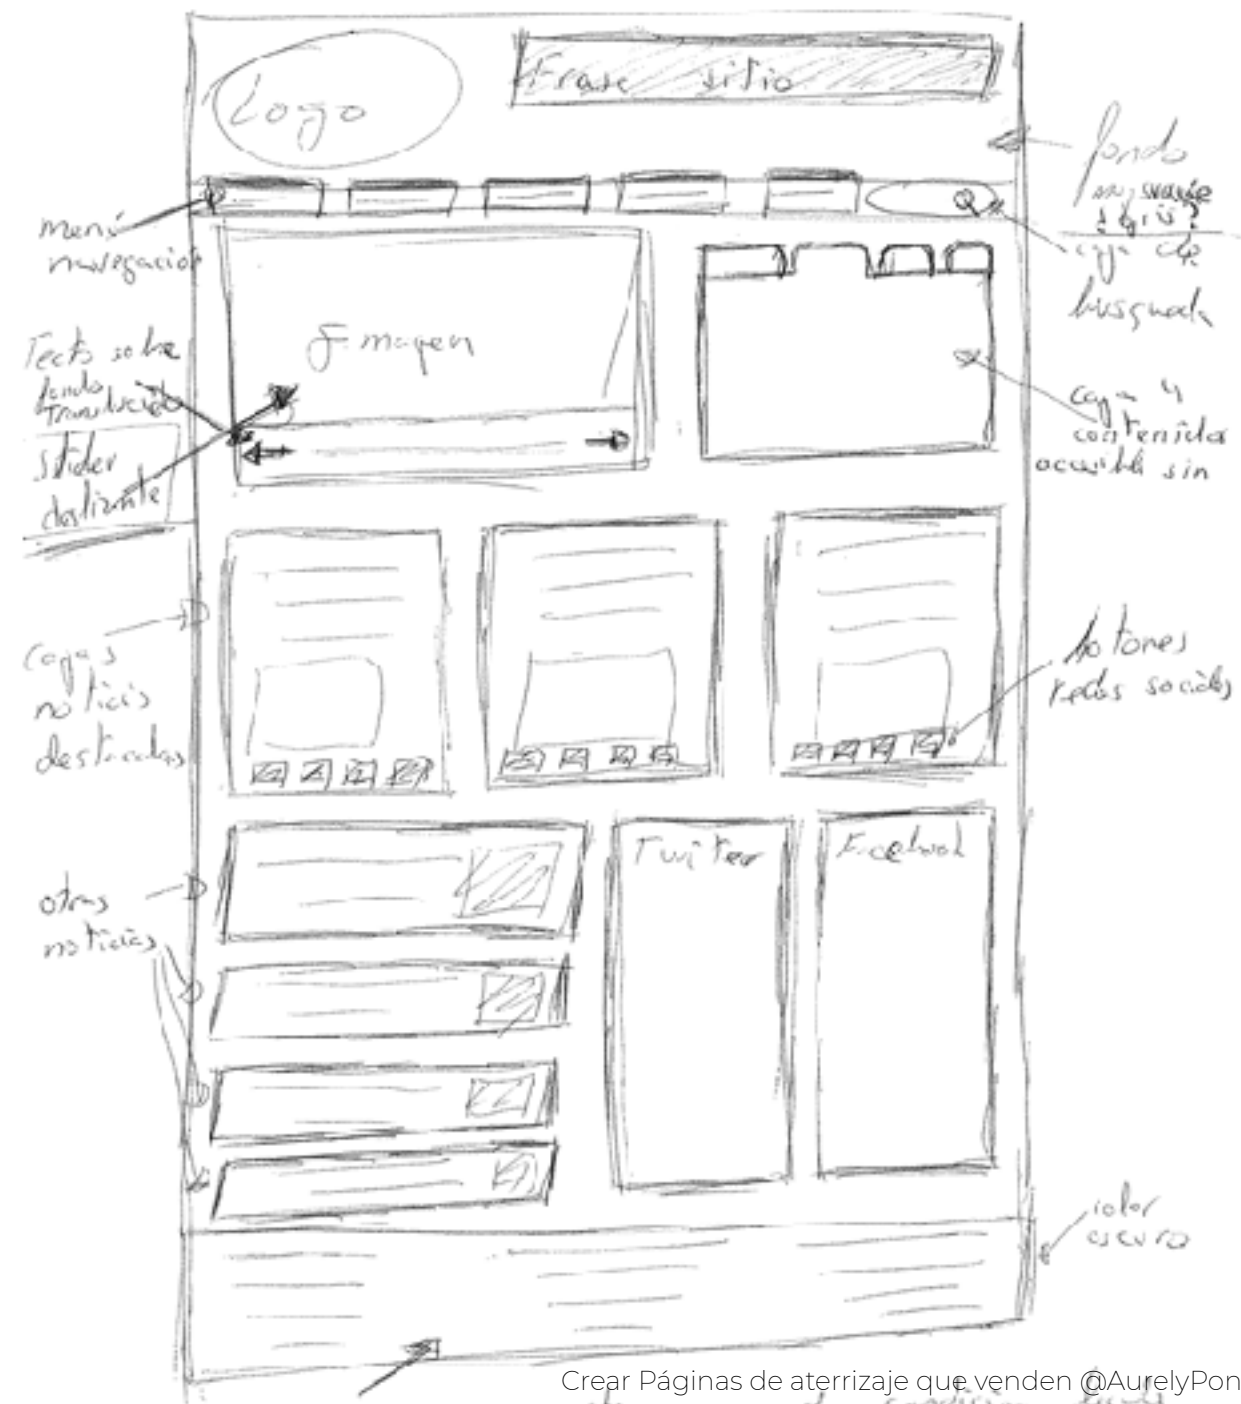 Logo
Frase sitio
fondo
muy suave
caja de
busqueda
menú
navegación
Imagen
Texto sobre
fondo
Translucido
Slider
deslizante
caja 4
contenido
accesible sin
cajas
noticias
destacadas
botones
redes sociales
otras
noticias
Twitter
Facebook
color
oscuro
Crear Páginas de aterrizaje que venden @AurelyPon